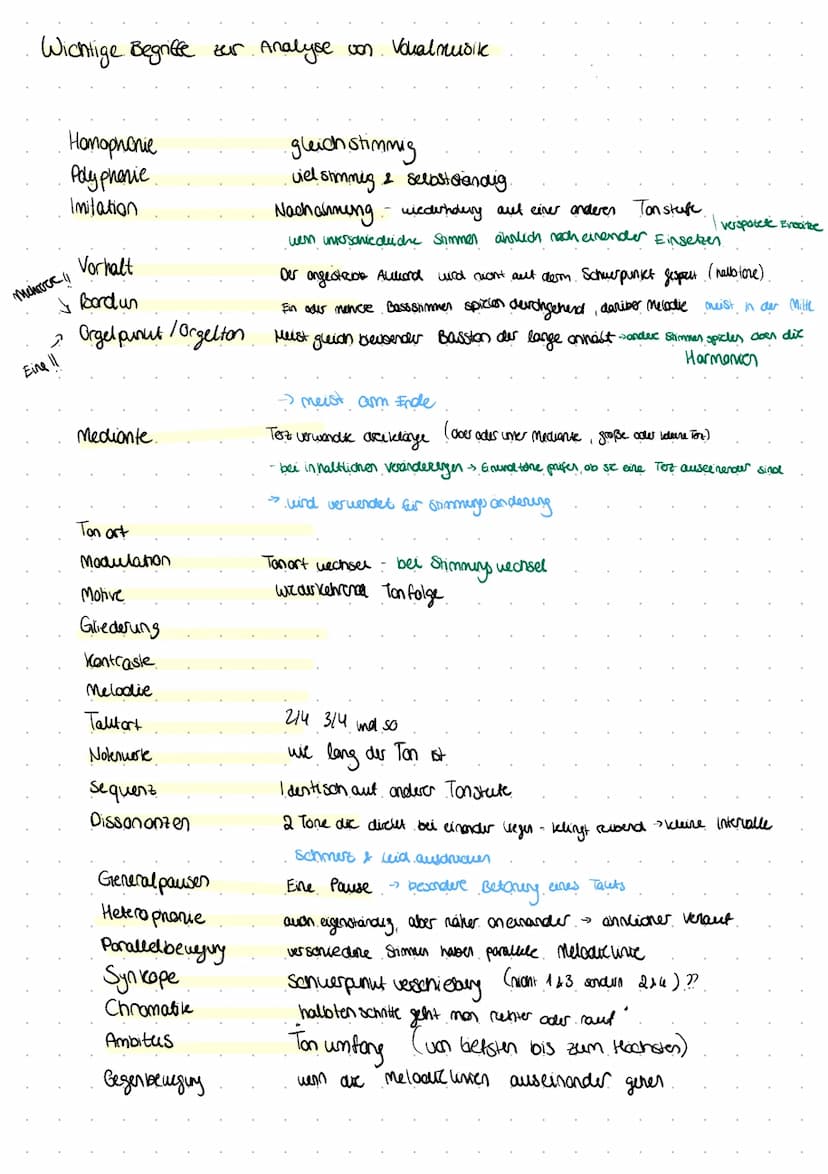 Wichtige Begriffe zur Analyse von Vokalmusik
Homophonie gleichstimmig
Polyphonie vielstimmig & selbstständig
Imitation Nachahmung - wiederholung auf einer anderen Tonstufe
wenn unterschiedliche Stimmen ähnlich nach einander Einsetzen | verspätete Einsätze
Vorhalt Der angestrebte Akkord wird nicht auf dem Schwerpunkt gespielt (halbtöne)
Mehrere!! Bordun Ein oder mehrere Bassstimmen spielen durchgehend, darüber Melodie meist in der Mitte
Eine!! Orgelpunkt / Orgelton Meist gleich bleibender Basston der lange anhält → andere Stimmen spielen aber die Harmonien
→ meist am Ende
Mediante Terz verwandte dreiklänge (ober oder unter Mediante, große oder kleine Terz)
- bei inhaltlichen Veränderungen → Grundtöne prüfen, ob sie eine Terz auseinander sind
→ wird verwendet für Stimmungsänderung
Tonart
Modulation Tonart wechsel - bei Stimmungswechsel
Motive wiederkehrende Tonfolge
Gliederung
Kontraste
Melodie
Taktart 2/4 3/4 und so
Notenwerte wie lang der Ton ist
Sequenz Identisch auf anderer Tonstufe
Dissonanzen 2 Töne die direkt bei einander liegen - klingt reibend → kleine Intervalle
Schmerz & Leid ausdrücken
Generalpausen Eine Pause → besondere Betonung eines Takts
Heterophonie auch eigenständig, aber näher aneinander → ähnlicher Verlauf
Parallelbewegung verschiedene Stimmen haben parallele Melodielinie
Synkope Schwerpunkt verschiebung (nicht 1&3 sondern 2&4)??
Chromatik halbtonschritte geht man runter oder rauf
Ambitus Ton umfang (von tiefsten bis zum Höchsten)
Gegenbewegung wenn die Melodielinien auseinander gehen